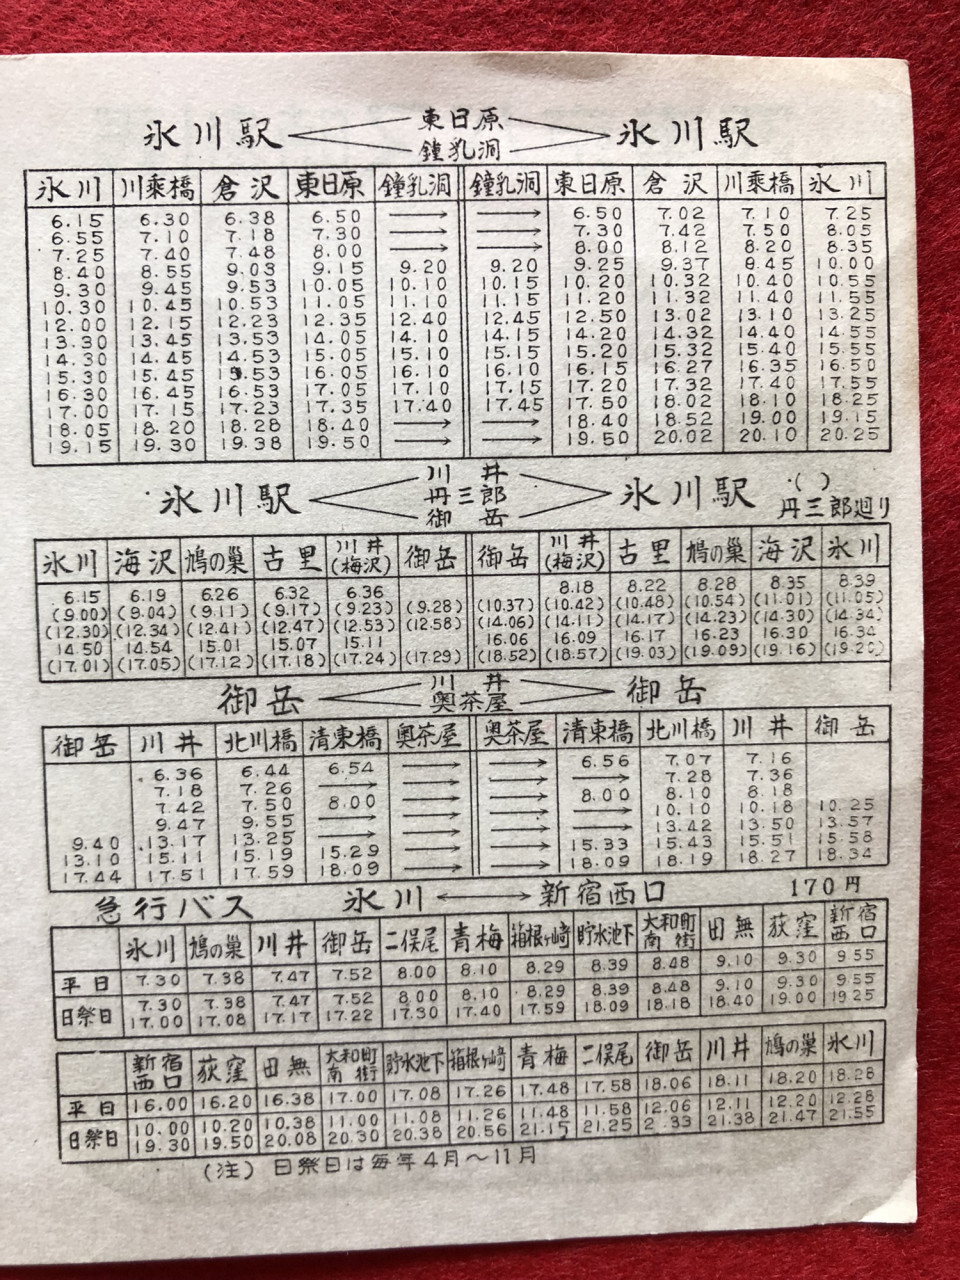 氷川駅 東日原 氷川駅
鐘乳洞
氷川 川乗橋 倉沢 東日原 鐘乳洞 鐘乳洞 東日原 倉沢 川乗橋 氷川
6.15 6.30 6.38 6.50 → → 6.50 7.02 7.10 7.25
6.55 7.10 7.18 7.30 → → 7.30 7.42 7.50 8.05
7.25 7.40 7.48 8.00 → → 8.00 8.12 8.20 8.35
8.40 8.55 9.03 9.15 9.20 9.20 9.25 9.37 9.45 10.00
9.30 9.45 9.53 10.05 10.10 10.15 10.20 10.32 10.40 10.55
10.30 10.45 10.53 11.05 11.10 11.15 11.20 11.32 11.40 11.55
12.00 12.15 12.23 12.35 12.40 12.45 12.50 13.02 13.10 13.25
13.30 13.45 13.53 14.05 14.10 14.15 14.20 14.32 14.40 14.55
14.30 14.45 14.53 15.05 15.10 15.15 15.20 15.32 15.40 15.55
15.30 15.45 .53 16.05 16.10 16.10 16.15 16.27 16.35 16.50
16.30 16.45 16.53 17.05 17.10 17.15 17.20 17.32 17.40 17.55
17.00 17.15 17.23 17.35 17.40 17.45 17.50 18.02 18.10 18.25
18.05 18.20 18.28 18.40 → → 18.40 18.52 19.00 19.15
19.15 19.30 19.38 19.50 → → 19.50 20.02 20.10 20.25
川井
氷川駅 丹三郎 氷川駅 ( )
御岳 丹三郎廻り
氷川 海沢 鳩の巣 古里 川井(梅沢) 御岳 御岳 川井(梅沢) 古里 鳩の巣 海沢 氷川
6.15 6.19 6.26 6.32 6.36 8.18 8.22 8.28 8.35 8.39
(9.00) (9.04) (9.11) (9.17) (9.23) (9.28) (10.37) (10.42) (10.48) (10.54) (11.01) (11.05)
(12.30) (12.34) (12.41) (12.47) (12.53) (12.58) (14.06) (14.11) (14.17) (14.23) (14.30) (14.34)
14.50 14.54 15.01 15.07 15.11 16.06 16.09 16.17 16.23 16.30 16.34
(17.01) (17.05) (17.12) (17.18) (17.24) (17.29) (18.52) (18.57) (19.03) (19.09) (19.16) (19.20)
御岳 川井 御岳
奥茶屋
御岳 川井 北川橋 清東橋 奥茶屋 奥茶屋 清東橋 北川橋 川井 御岳
6.36 6.44 6.54 → → 6.56 7.07 7.16
7.18 7.26 → → → → 7.28 7.36
7.42 7.50 8.00 → → 8.00 8.10 8.18
9.47 9.55 → → → → 10.10 10.18 10.25
9.40 13.17 13.25 → → → → 13.42 13.50 13.57
13.10 15.11 15.19 15.29 → → 15.33 15.43 15.51 15.58
17.44 17.51 17.59 18.09 → → 18.09 18.19 18.27 18.34
急行バス 氷川 ←→ 新宿西口 170円
氷川 鳩の巣 川井 御岳 二俣尾 青梅 箱根ヶ崎 貯水池下 大和町南街 田無 荻窪 新宿西口
平日 7.30 7.38 7.47 7.52 8.00 8.10 8.29 8.39 8.48 9.10 9.30 9.55
日祭日 7.30 7.38 7.47 7.52 8.00 8.10 8.29 8.39 8.48 9.10 9.30 9.55
17.00 17.08 17.17 17.22 17.30 17.40 17.59 18.09 18.18 18.40 19.00 19.25
新宿西口 荻窪 田無 大和町南街 貯水池下 箱根ヶ崎 青梅 二俣尾 御岳 川井 鳩の巣 氷川
平日 16.00 16.20 16.38 17.00 17.08 17.26 17.48 17.58 18.06 18.11 18.20 18.28
日祭日 10.00 10.20 10.38 11.00 11.08 11.26 11.48 11.58 12.06 12.11 12.20 12.28
19.30 19.50 20.08 20.30 20.38 20.56 21.15 21.25 2 .33 21.38 21.47 21.55
(注) 日祭日は毎年4月～11月